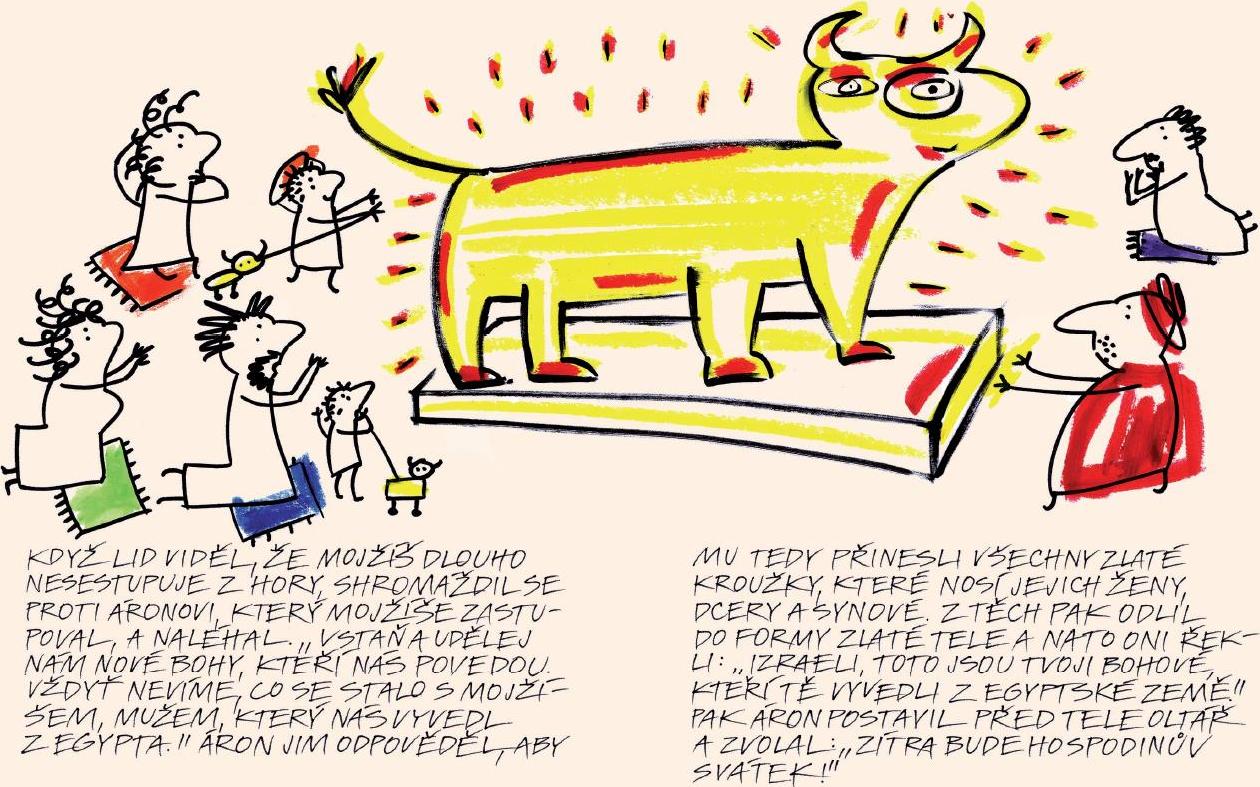 KDYŽ LID VIDĚL, ŽE MOJŽÍŠ DLOUHO
NESESTUPUJE Z HORY, SHROMÁŽDIL SE
PROTI ÁRONOVI, KTERÝ MOJŽÍŠE ZASTU-
POVAL, A NALÉHAL. „VSTAŇ A UDĚLEJ
NÁM NOVÉ BOHY, KTEŘÍ NÁS POVEDOU.
VŽDYŤ NEVÍME, CO SE STALO S MOJŽÍ-
ŠEM, MUŽEM, KTERÝ NÁS VYVEDL
Z EGYPTA." ÁRON JIM ODPOVĚDĚL, ABY
MU TEDY PŘINESLI VŠECHNY ZLATÉ
KROUŽKY, KTERÉ NOSÍ JEJICH ŽENY,
DCERY A SYNOVÉ. Z TĚCH PAK ODLIL
DO FORMY ZLATÉ TELE A NATO ONI ŘEK-
LI: „IZRAELI, TOTO JSOU TVOJI BOHOVÉ,
KTEŘÍ TĚ VYVEDLI Z EGYPTSKÉ ZEMĚ"
PAK ÁRON POSTAVIL PŘED TELE OLTÁŘ
A ZVOLAL: „ZÍTRA BUDE HOSPODINŮV
SVÁTEK!"